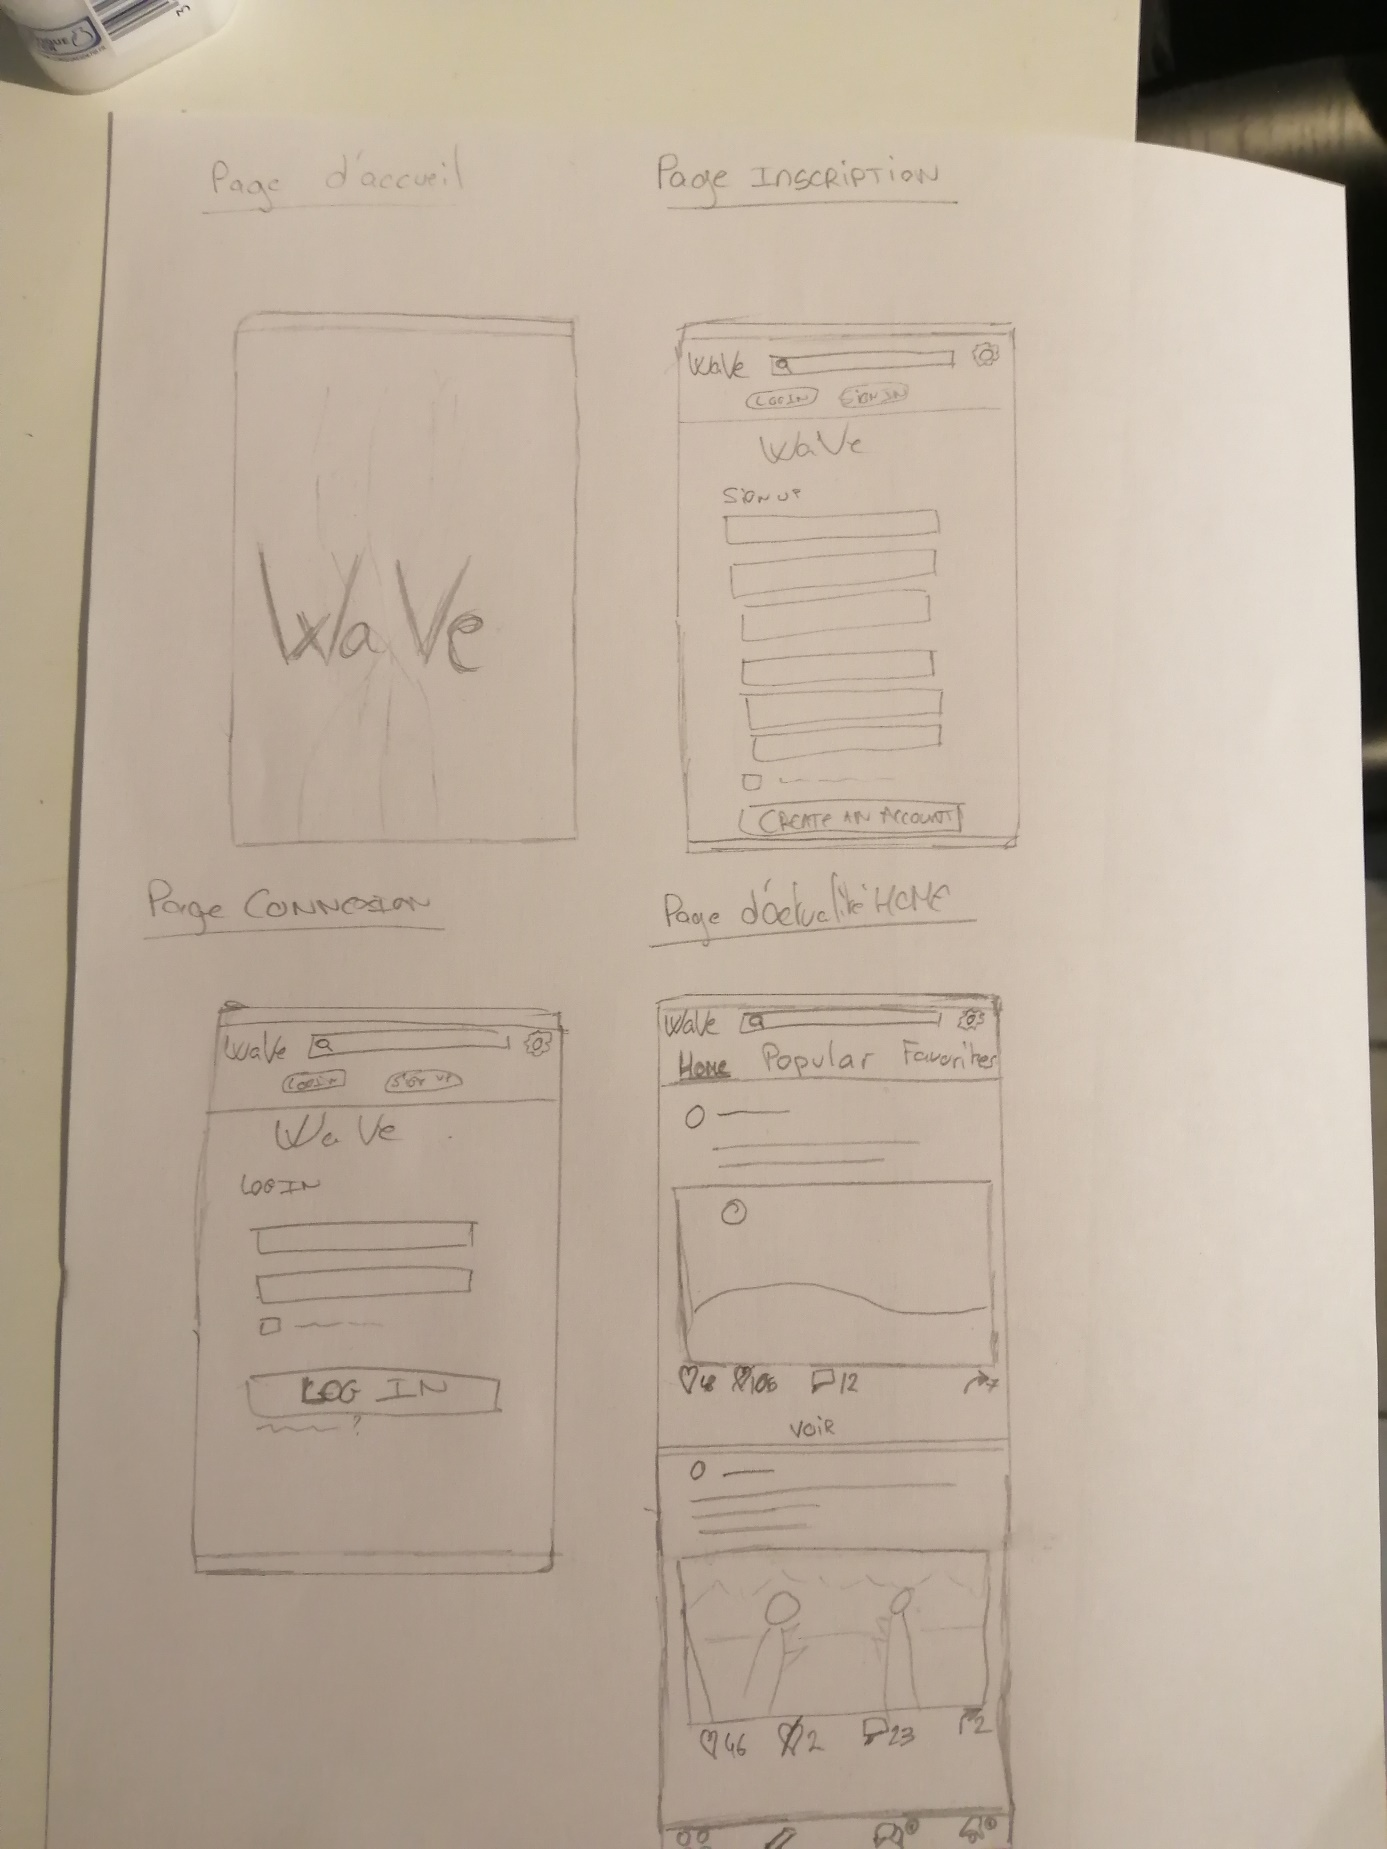 Page d'accueil
WaVe
Page INSCRIPTION
WaVe
LOGIN SIGN IN
WaVe
SIGN UP
CREATE AN ACCOUNT
Page CONNEXION
WaVe
LOGIN SIGN UP
WaVe
LOGIN
LOG IN
?
Page d'actualité HOME
WaVe
Home Popular Favorites
48 106 12 7
VOIR
46 2 23 2